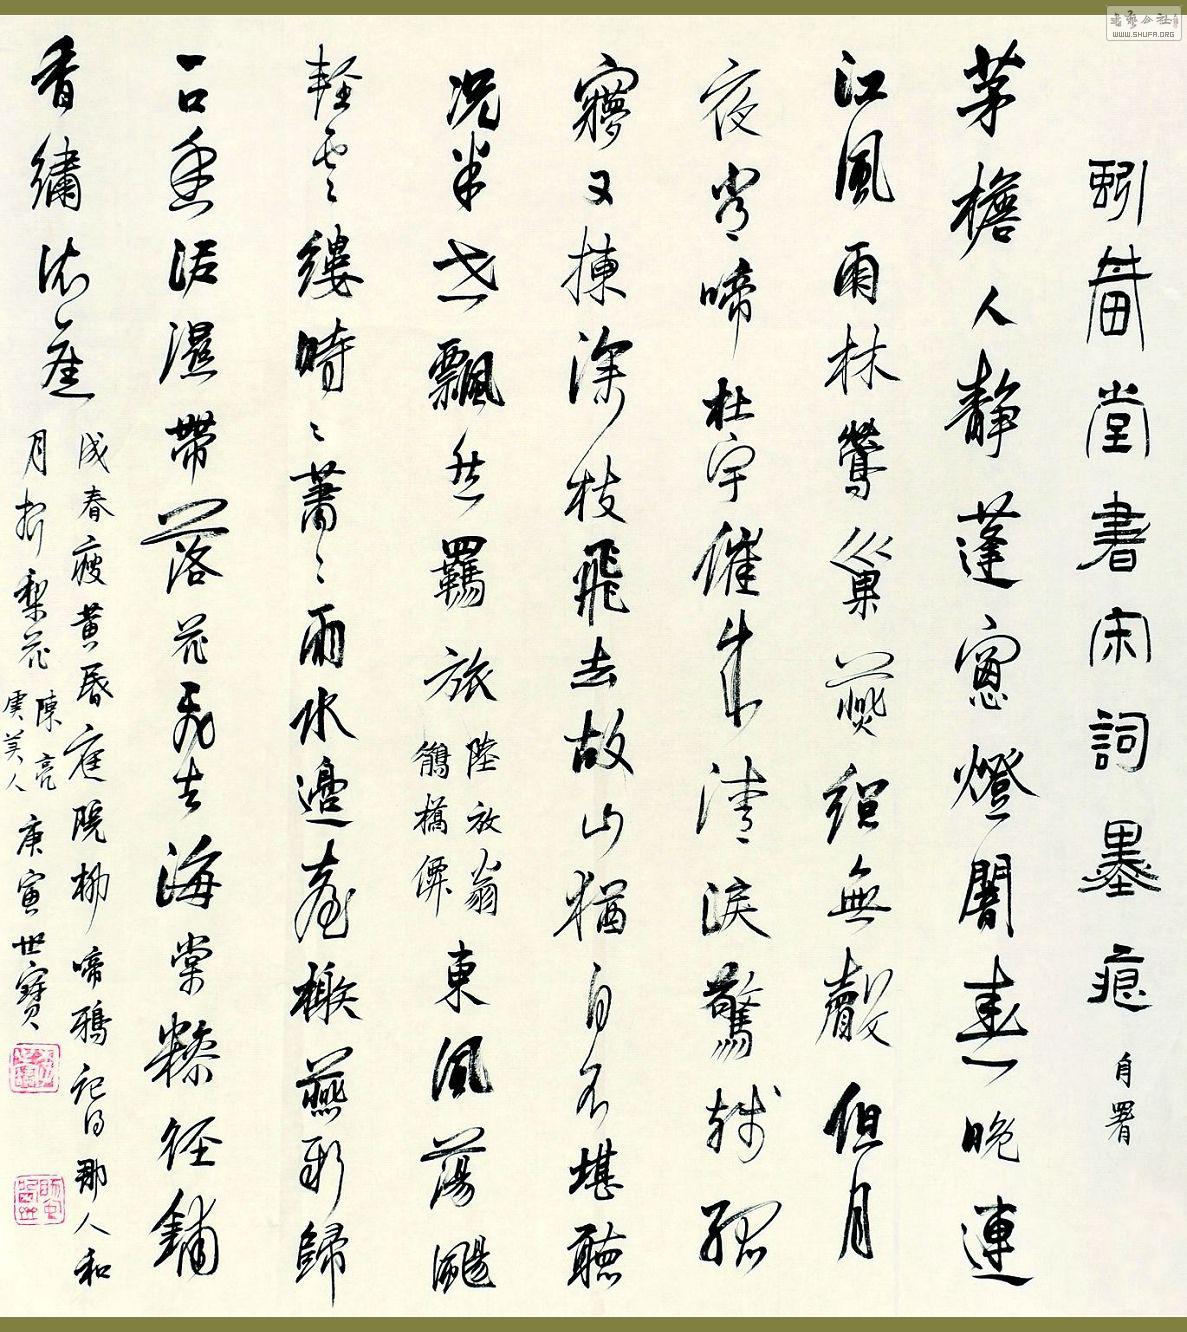 堂書宋詞墨痕 自署
茅檐人靜蓬窻燈闇春晚連
江風雨林鶯巢燕總無聲但月
夜常啼杜宇催成清淚驚殘孤
㝱又揀深枝飛去故山猶自不堪聽
況半世飄然羈旅
陸放翁
鵲橋僊
東風蕩颺
輕雲縷時々蕭々雨水邊臺榭燕新歸
一口香泥濕帶落花飛去海棠糝徑鋪
香繡依舊
成春瘦黃昏庭院柳啼鴉記得那人和
月折梨花
陳亮
虞美人
庚寅世寶
WWW.SHUFA.ORG